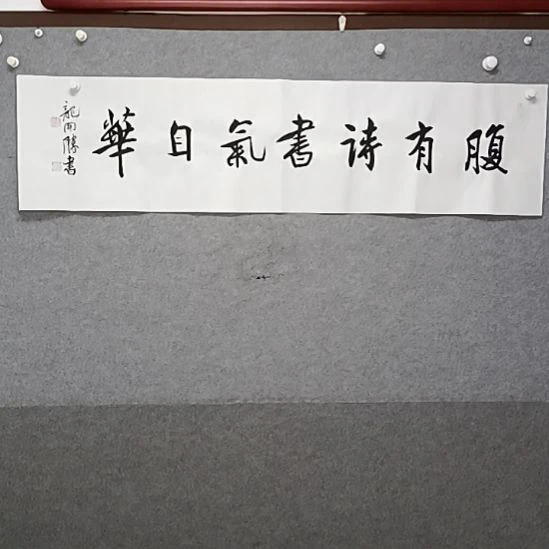 腹有诗書氣自華
龍開勝書